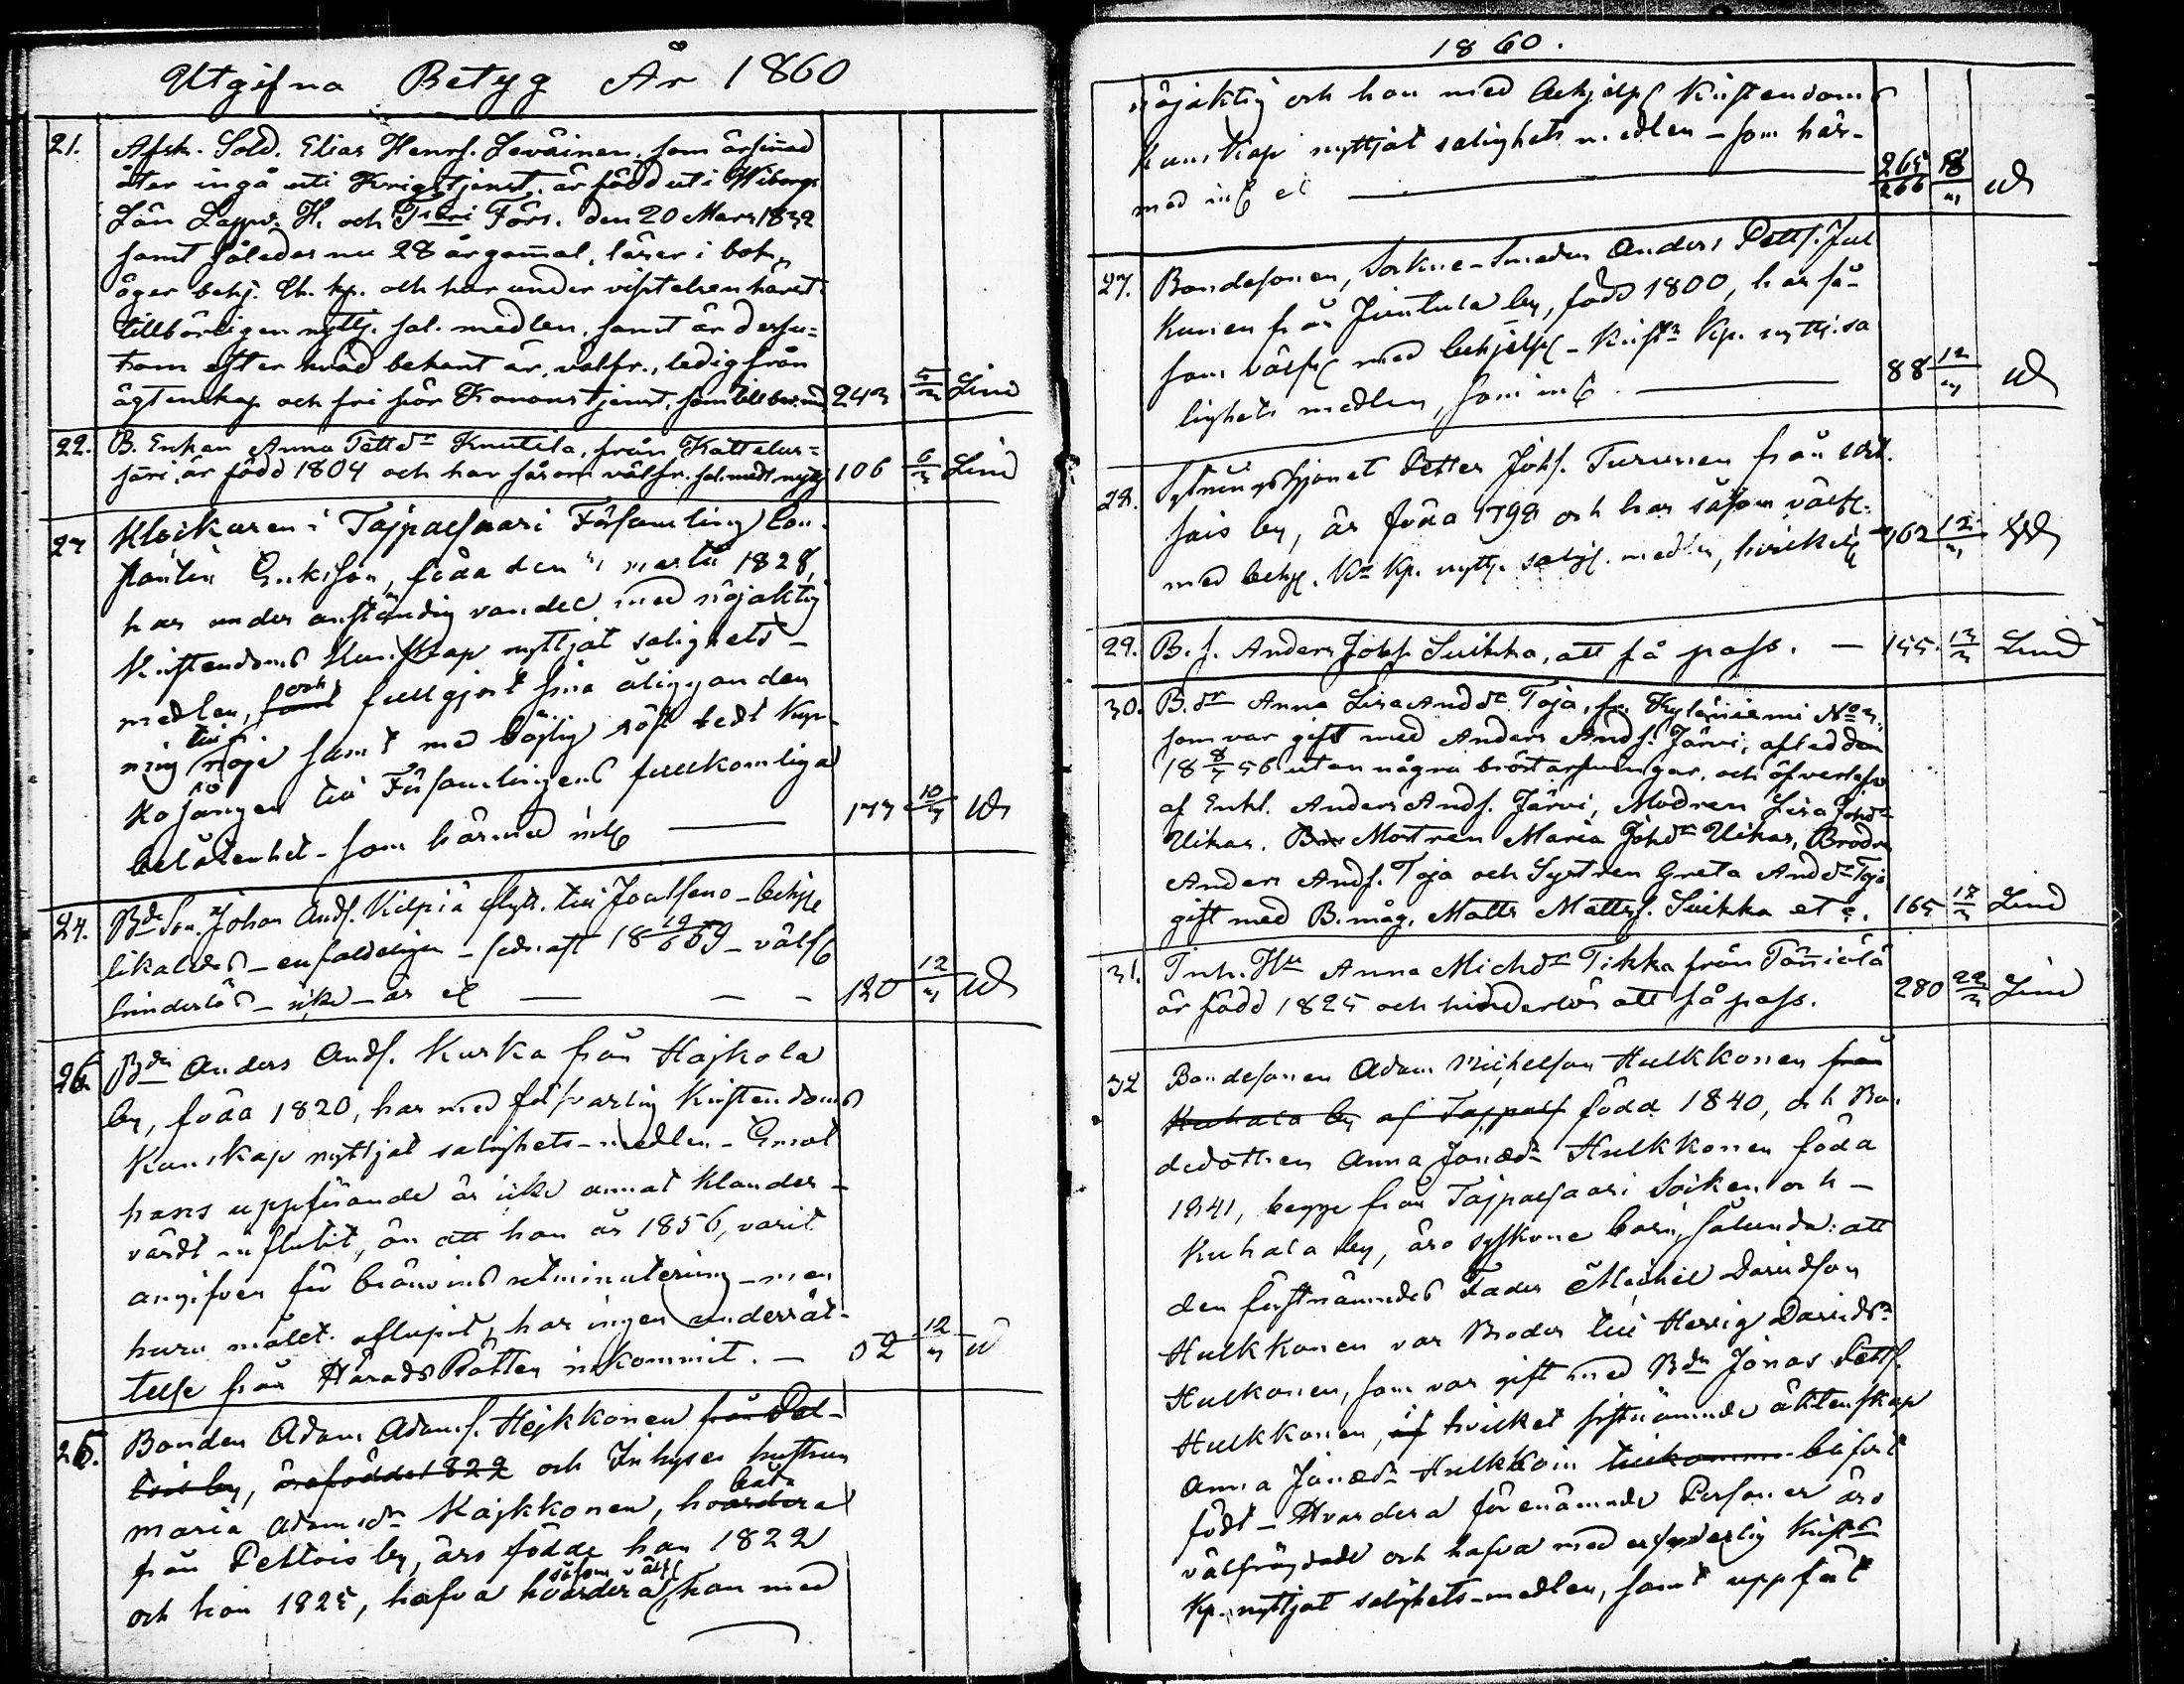 Utgifna Betyg År 1860
21. Afsk. Sold. Elias Henrs. Leväinen, som ärsinad
åter ingå uti Krigstjenst, är född uti Wiborgs
Län Lappv. H. och Förs. den 20 Mars 1832
samt således nu 28 år gammal, läser i bok,
äger behj. Ch. kp. och har under vistelsen härst.
tillbörligen nyttj. sal. medlen, samt är dessu-
tom efter hvad bekant är, välfr., ledig från
ägtenskap och fri för Kronans tjenst, som 243 5/3 Lind
22. B. Enkan Anna Pettdr Knutila, från Kattelus-
sari, är född 1804 och har såsom välfr. sal. medl nyttj 106 6/3 Lind
23 Klockaren i Tajpalsaari Församling Con-
stantin Erikson, född den martii 1828,
har under anständig vandel med nöjaktig
Kristendoms Kunskap nyttjat salighets-
medlen, samt och fullgjort sina åliggan den
ning till nöje samt med böjlig röst ledt Kyr-
kosången till Församlingens fullkomliga
belåtenhet - som härmed 177 10/3 W
24. Bde Son. Johan Ands. Kilpiä flytt. till Joutseno - behj
likaledes - enfaldeligen - sedn. aft 18 19/6 59 - välf
hinderlös - icke - är et — — - 120 12/3 W
26. Bdn Anders Ands. Kurka från Hajkola
by, född 1820, har med försvarlig Kristendoms
Kunskap nyttjat salighets-medlen - Emot
hans uppförande är icke annat klander-
värdt influtit, än att han år 1856, varit
angifven för bränvins utminutering - men
huru målet aflupit, har ingen underrät-
telse från HäradsRätten inkommit. — 52 12/3 W
25. Bonden Adam Adams. Hejkkonen från Pel-
tois by, är född 1822 och Inhyses hustrun
Maria Adamsdr Kajkkonen, hvardera båda
från Peltois by, äro födde han 1822
och hon 1825, hafva hvardera såsom välf, han med
1860.
nöjaktig och hon med behjelpl Kristendoms
kunskap nyttjat salighets medlen - som här-
med et — 265/266 18/3 W
27. Bondesonen, Sockne-Smeden Anders Petts. Jul
kunen från Juntula by, född 1800, har så-
som välf med behjelpl - Kristn Kp. nyttj. sa
lighets medlen, som — 88 12/3 W
28. Sytningshjonet Petter Johs. Turunen från
sais by, är född 1798 och har såsom välf
med behj. Kn Kp. nyttj. salig. medlen, hvilket 162 12/3 W
29. B. s. Anders Johs. Suikka, att få pass. — 155. 13/3 Lind
30. B. dr Anna Lisa Anddr Toja, fr. Kyläniemi No 3.
som var gift med Anders Ands. Järvi, afled den
18 8/5 56 utan några bröstarfvingar, och öfverlefves
af Enkl. Anders Ands. Järvi, Modren Lisa Johdr
Uikas. Bror Mostren Maria Johdr Uikas, Brodren
Anders Ands. Toja och Systren Greta Anddr Toja
gift med B. måg. Matts Mattss. Suikka et c. 165 17/3 Lind
31. Inh. Hu Anna Michdr Tikka från Pöniälä
är född 1825 och hinderlös att få pass. 280 22/3 Lind
32 Bondesonen Adam Michelson Hulkkonen från
Kuhala by af Tajpals född 1840, och Bon
dedottren Anna Jonædr Hulkkonen född
1841, begge från Tajpalsaari Socken och -
Kuhala by, äro syskone barn, sålunda: att
den förstnämndes Fader Michel Davidson
Hulkkonen var Broder till Hedvig Davidsdr
Hulkonen, som var gift med Bdn Jonas Petts.
Hulkkonen, af i hvilket sistnämnde äktenskap
Anna Jonædr Hulkkoin tillkommit blifvit
födt - Hvardera förenämnde Personer äro
välfrägdade och hafva med erforderlig Krist
Kp. nyttjat salighets-medlen, samt uppfört